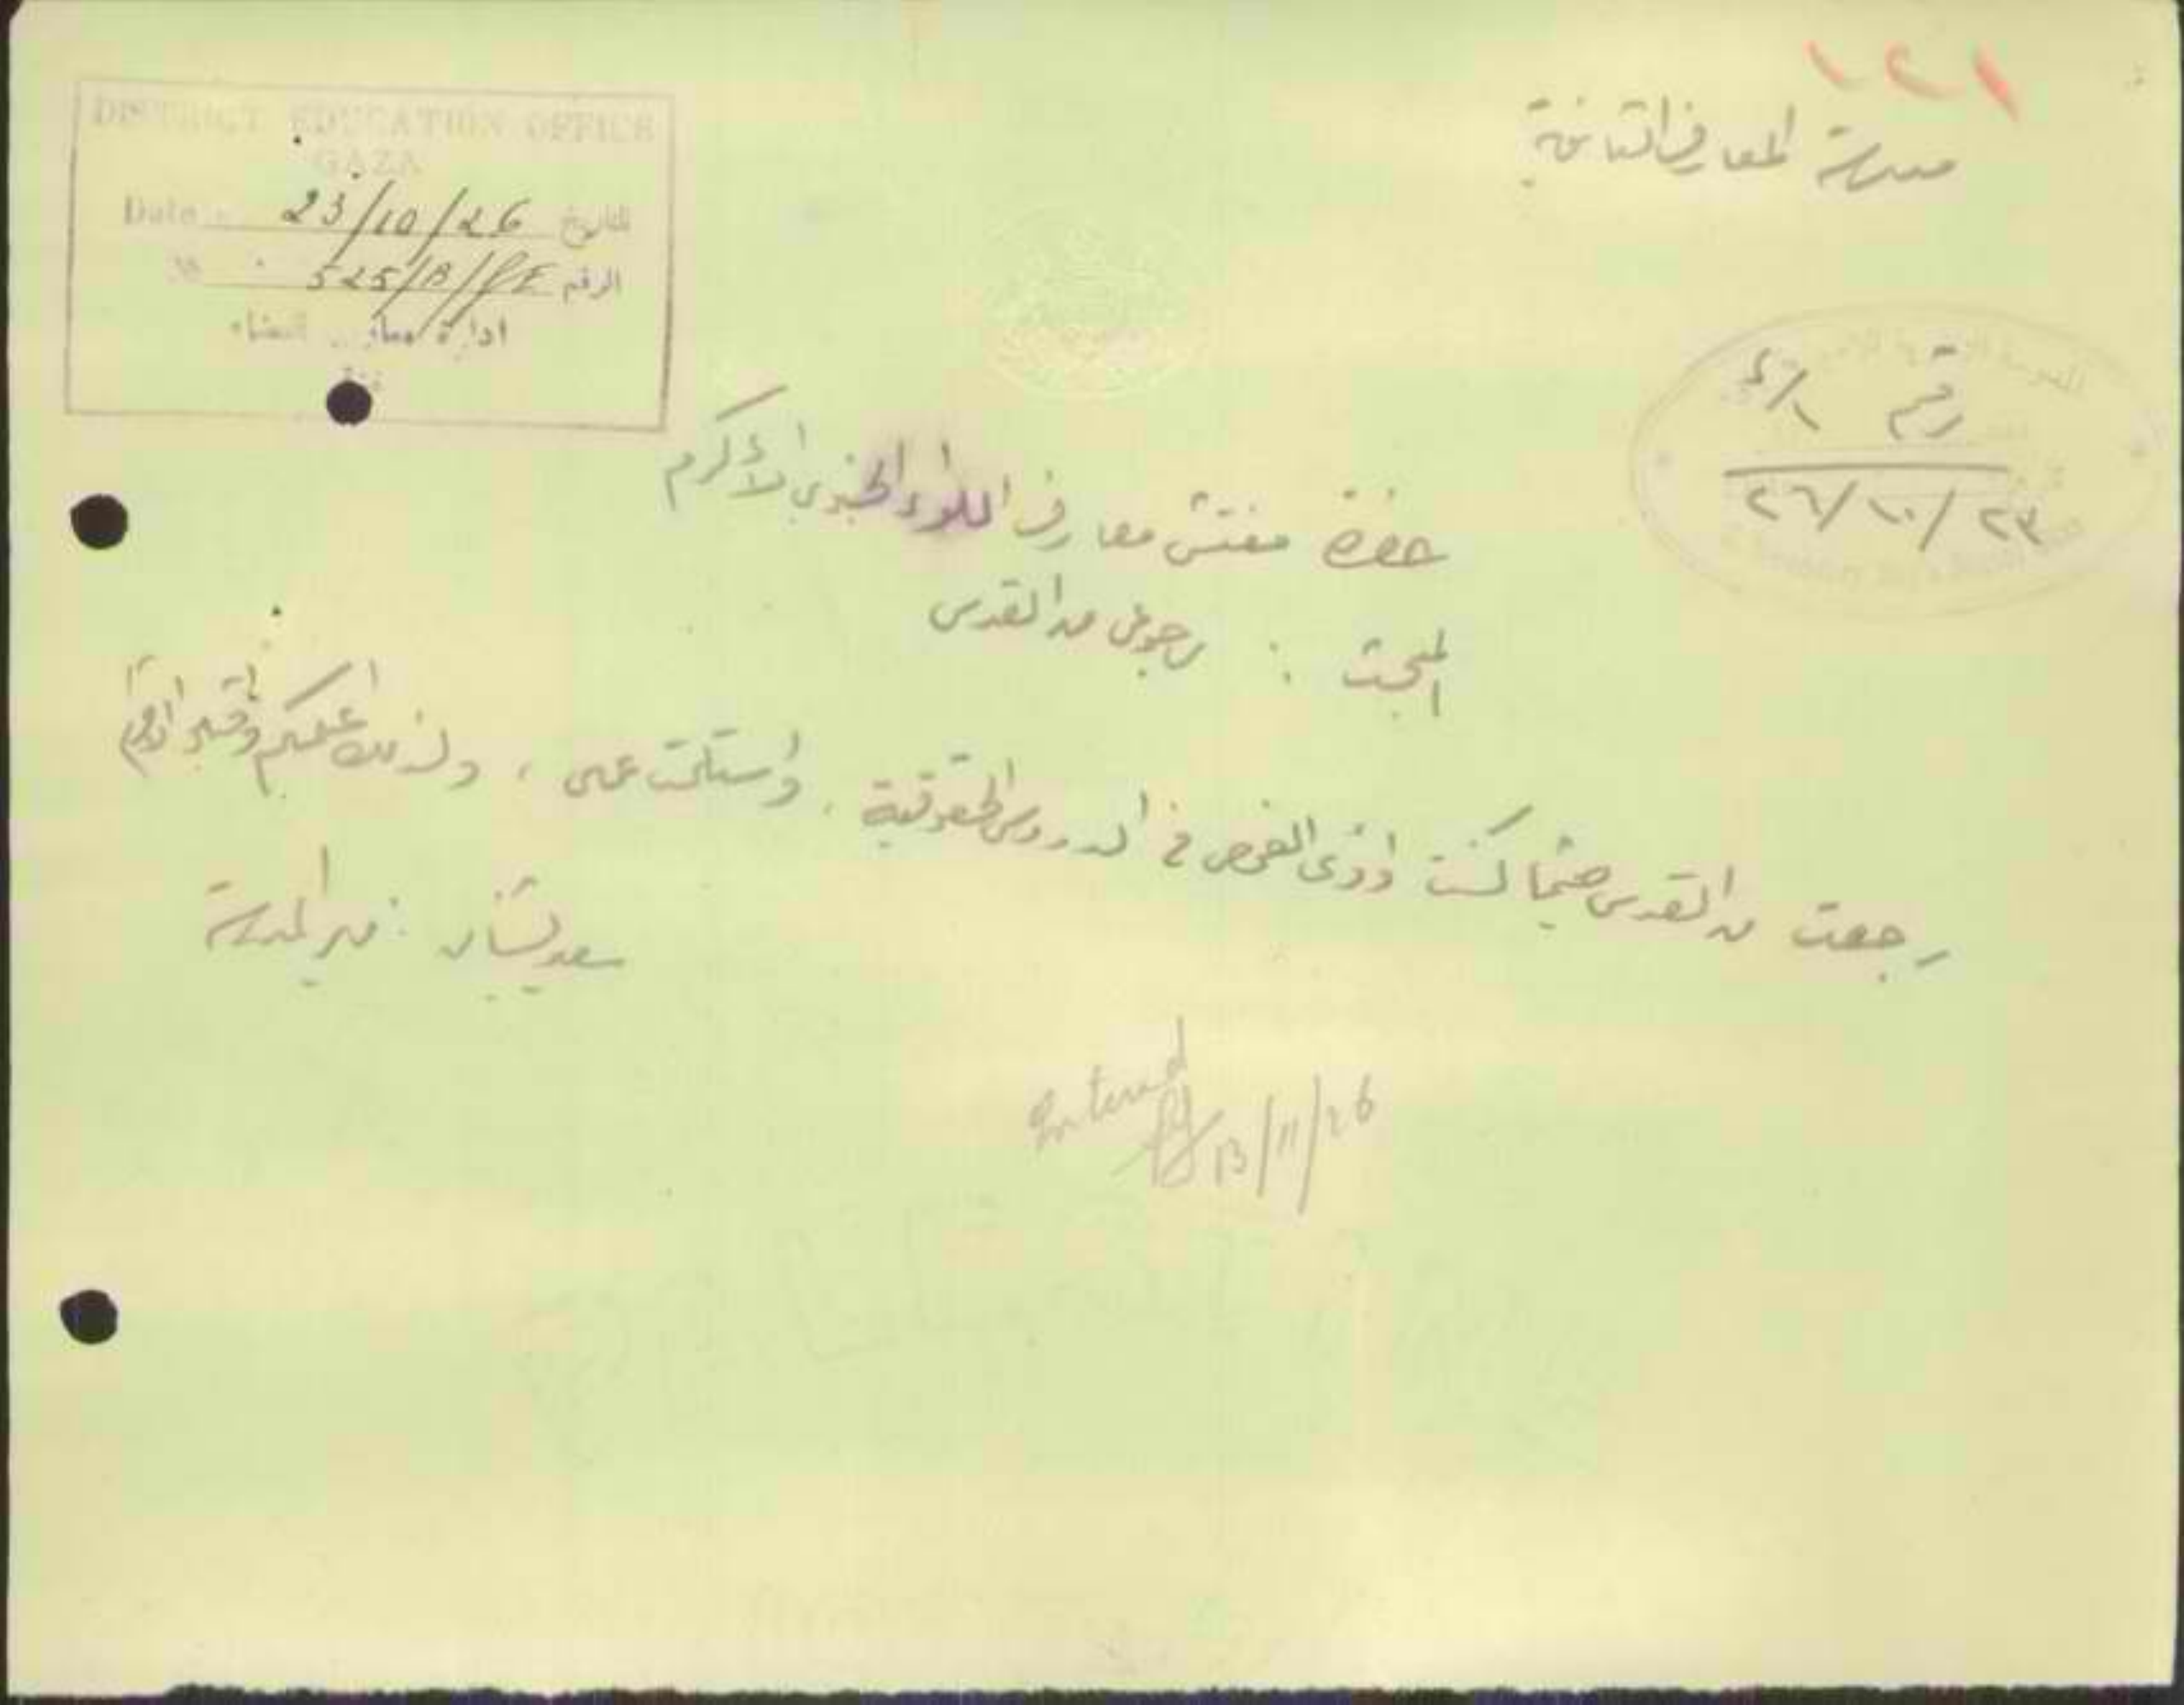 ١٢١
مدرسة المعارف الثانوية
DISTRICT EDUCATION OFFICE
GAZA
Date 23/10/26 التاريخ
No 525/B/ الرقم
ادارة معارف القضاء
غزة
رقم ١/٤
٢٣/١٠/٢٦
حضرة مفتش معارف اللواء الجنوبي الأكرم
المبحث : رجوعي من القدس
رجعت من القدس حيثما كنت اؤدي الفحص في الدروس الحقوقية ، واستلمت عملي ، ولذلك اعلمكم وتقبلوا احترامي
سعد : مدير المدرسة
Entered
13/11/26